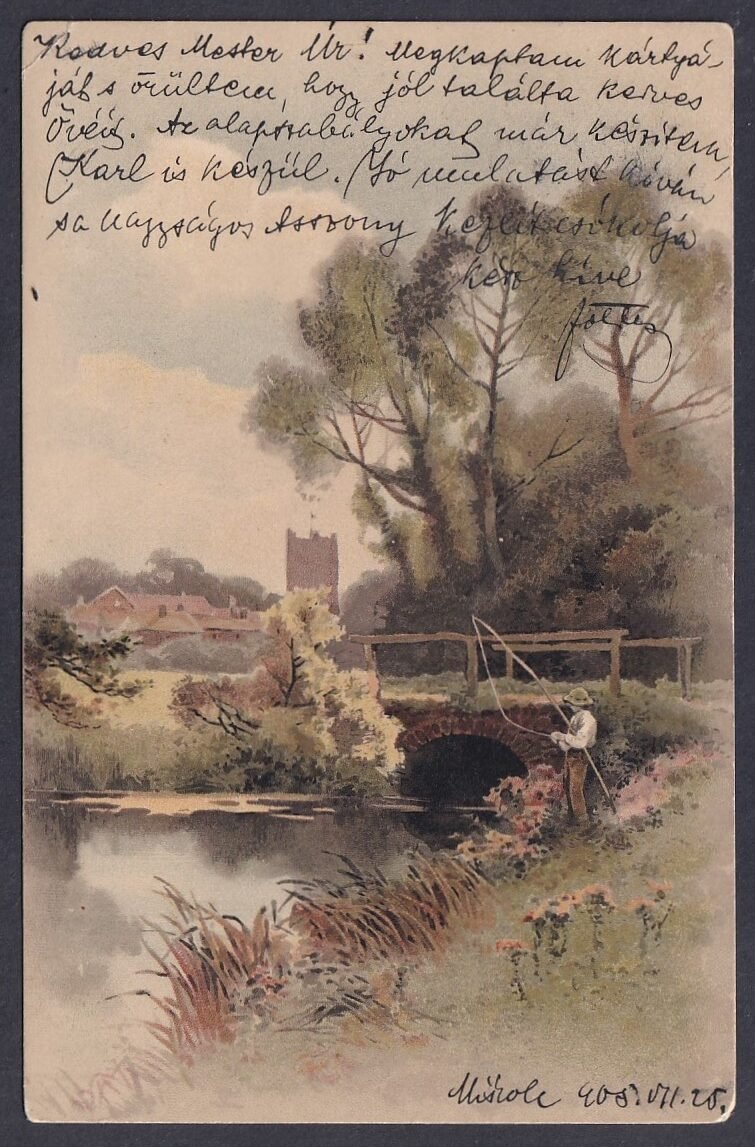 Kedves Mester Úr! Megkaptam kártyá-
ját s örültem, hogy jól találta kedves
Övéit. Az alapszabályokat már készítem,
Karl is készül. Jó mulatást kíván
s a Nagyságos Asszony kezeit csókolja
kész híve
Miskolc 905. VII. 25.